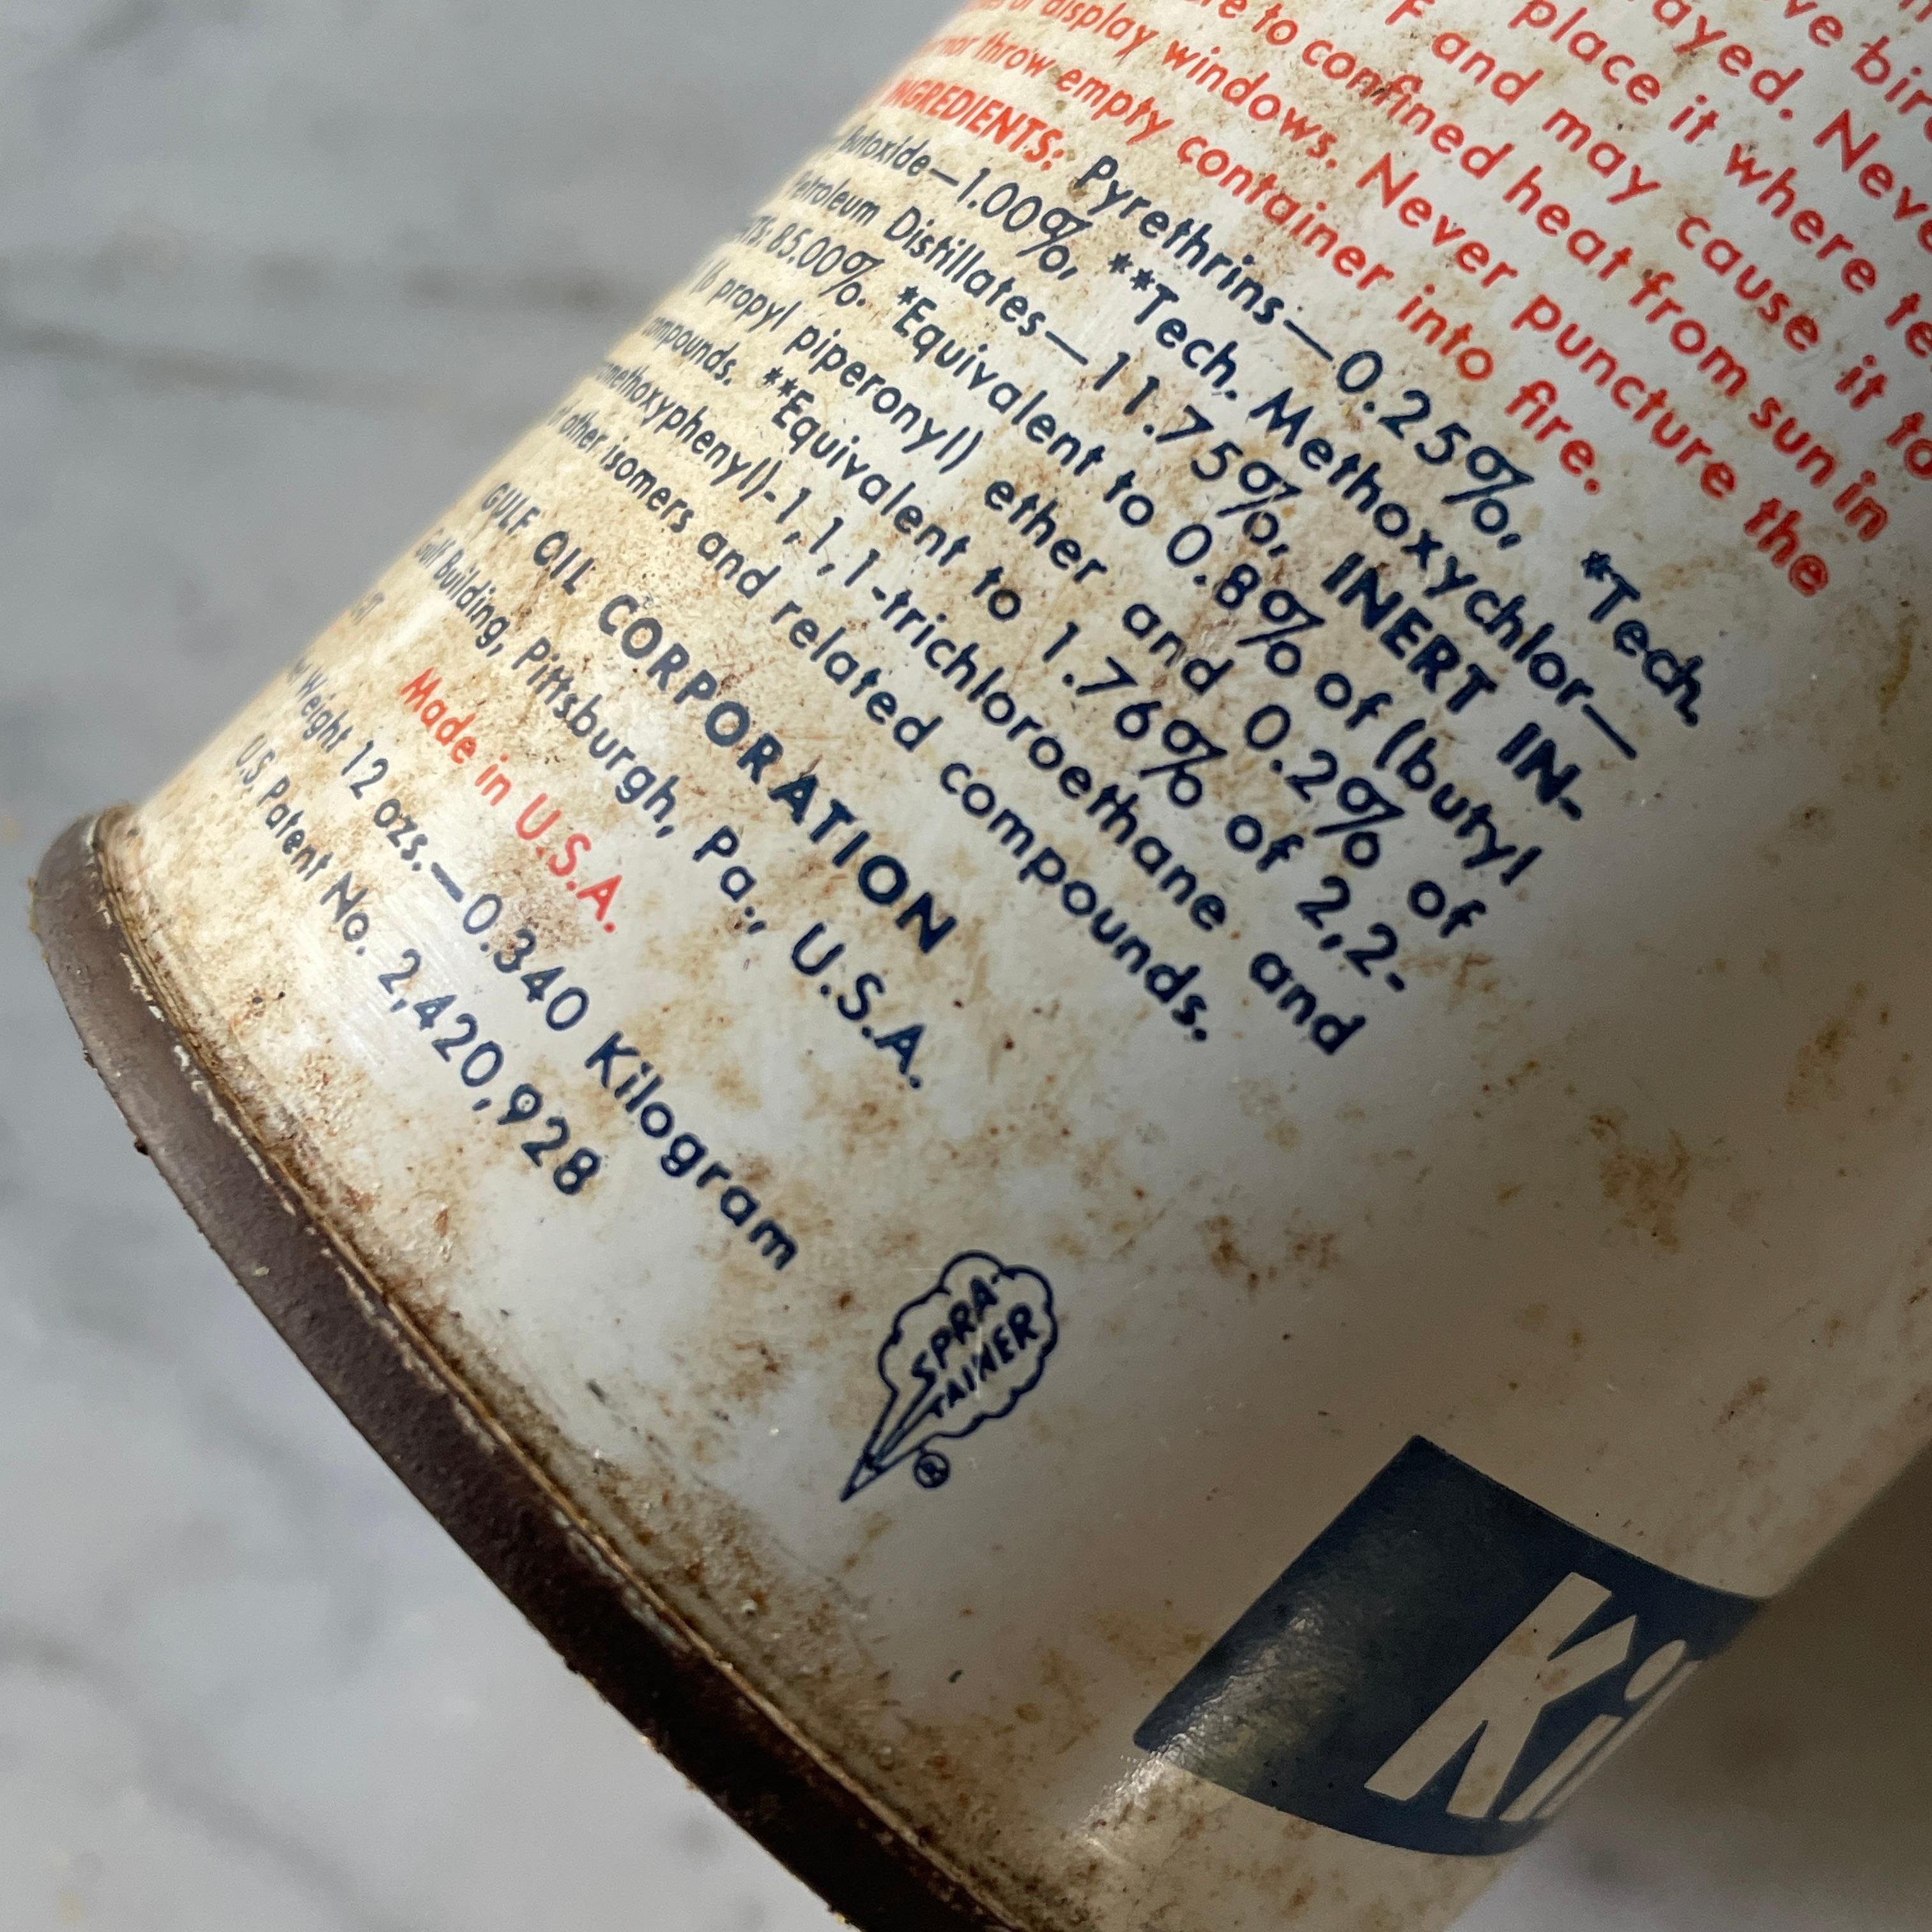 ve bir
rayed. Neve
place it where te
F and may cause it to
re to confined heat from sun in
display windows. Never puncture the
nor throw empty container into fire.
INGREDIENTS: Pyrethrins—0.25%, *Tech.
butoxide—1.00%, **Tech. Methoxychlor—
Petroleum Distillates—11.75%, INERT IN-
TS: 85.00%. *Equivalent to 0.8% of (butyl
(6 propyl piperonyl) ether and 0.2% of
compounds. **Equivalent to 1.76% of 2,2-
methoxyphenyl)-1,1,1-trichloroethane and
of other isomers and related compounds.
GULF OIL CORPORATION
Gulf Building, Pittsburgh, Pa., U.S.A.
Made in U.S.A.
Weight 12 ozs.—0.340 Kilogram
U.S. Patent No. 2,420,928
SPRA-
TAINER
®
Ki